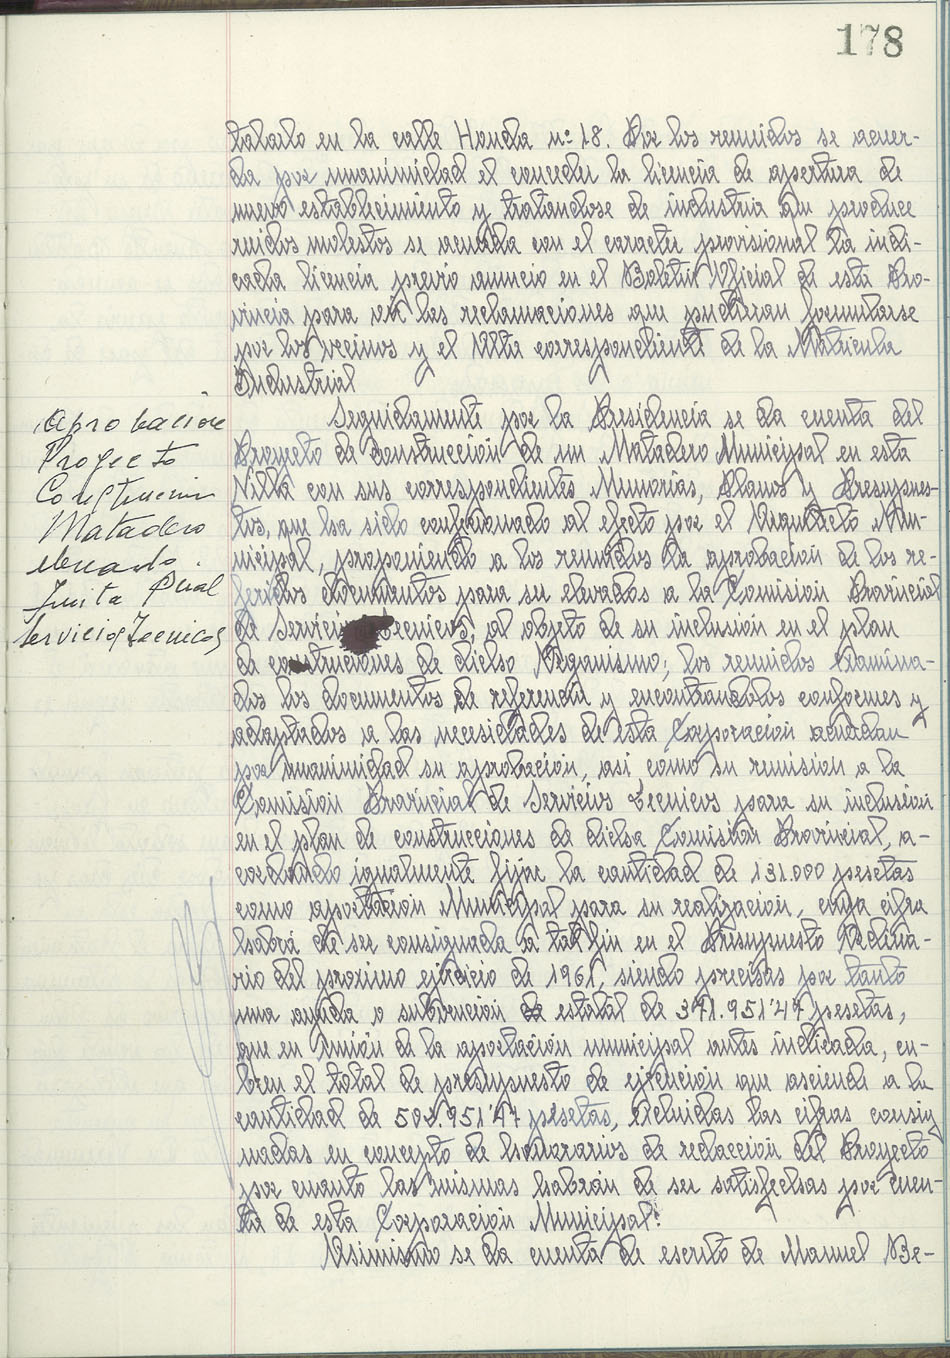 178
talado en la calle Honda nº 18. Por los reunidos se acuer-
da por unanimidad el conceder la licencia de apertura de
nuevo establecimiento y tratandose de industria que produce
ruidos molestos se acuerda con el caracter provisional la indi-
cada licencia previo anuncio en el Boletin Oficial de esta Pro-
vincia para oir las reclamaciones que pudieran formularse
por los vecinos y el Alta correspondiente de la Matricula
Industrial
Aprobación
Proyecto
Construccion
Matadero
Junta Prval
Servicios Tecnicos
Seguidamente por la Presidencia se da cuenta del
Proyecto de Construccion de un Matadero Municipal en esta
Villa con sus correspondientes Memorias, Planos y Presupues-
tos, que ha sido confeccionado al efecto por el Arquitecto Mu-
nicipal, proponiendo a los reunidos la aprobacion de los re-
feridos documentos para su elevados a la Comision Provincial
de Servicios Tecnicos, al objeto de su inclusion en el plan
de construciones de dicho Organismo; los reunidos examina-
dos los documentos de referencia y encontrandolos conformes y
adaptados a las necesidades de esta Corporacion acuerdan
por unanimidad su aprobacion, asi como su remision a la
Comision Provincial de Servicios Tecnicos para su inclusion
en el plan de construcciones de dicha Comision Provincial, a-
cordando igualmente fijar la cantidad de 131.000 pesetas
como aportacion Municipal para su realizacion, cuya cifra
habrá de ser consignada a tal fin en el Presupuesto Ordina-
rio del proximo ejercicio de 1961, siendo precisas por tanto
una ayuda o subvencion estatal de 371.951'47 pesetas,
que en unión de la aportacion municipal antes indicada, cu-
bren el total de presupuesto de ejecucion que asciende a la
cantidad de 502.951'47 pesetas, excluidas las cifras consig
nadas en concepto de honorarios de redaccion del Proyecto
por cuanto las mismas habran de ser satisfechas por cuen-
ta de esta Corporacion Municipal.
Asimismo se da cuenta de escrito de Manuel Be-